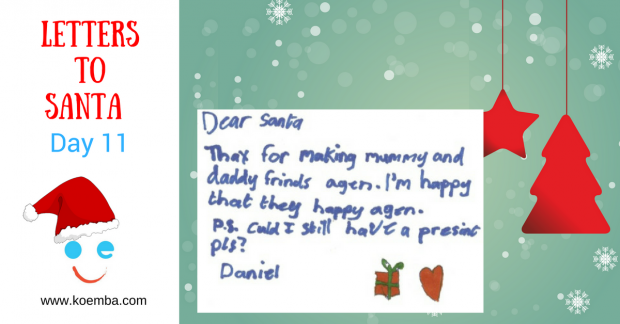 LETTERS
TO
SANTA
Day 11
www.koemba.com
Dear Santa
Thax for making mummy and
daddy frinds agen. I'm happy
that they happy agen.
P.S. Culd I still have a presint
pls?
Daniel